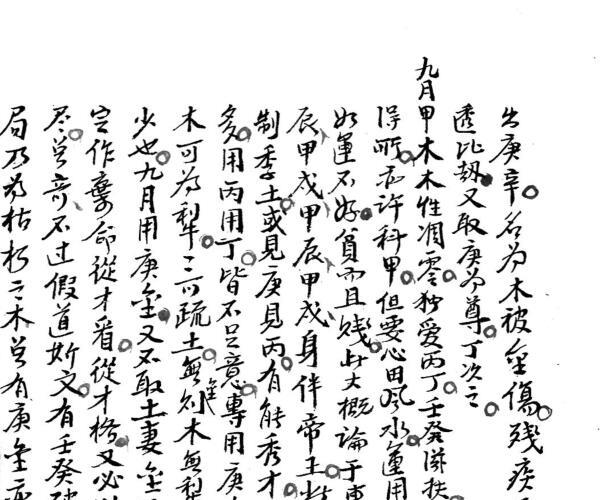 出庚辛名为木被金傷残疾
透比刼又取庚为尊丁次之
九月甲木木性凋零独爱丙丁壬癸滋扶
得所亦许科甲但要心田风水運用
如運不好貧而且贱此大概論于
辰甲戌甲辰甲戌身伴帝王
制季土或見庚見丙有能秀才
多用丙用丁皆不足意專用庚
木可为犁二可疏土無 木無犁
少也九月用庚金又不取土妻金
定作棄命從才看從才格又必
尽 奇不过假道斯文有壬癸破
局乃为枯朽之木 有庚金亦